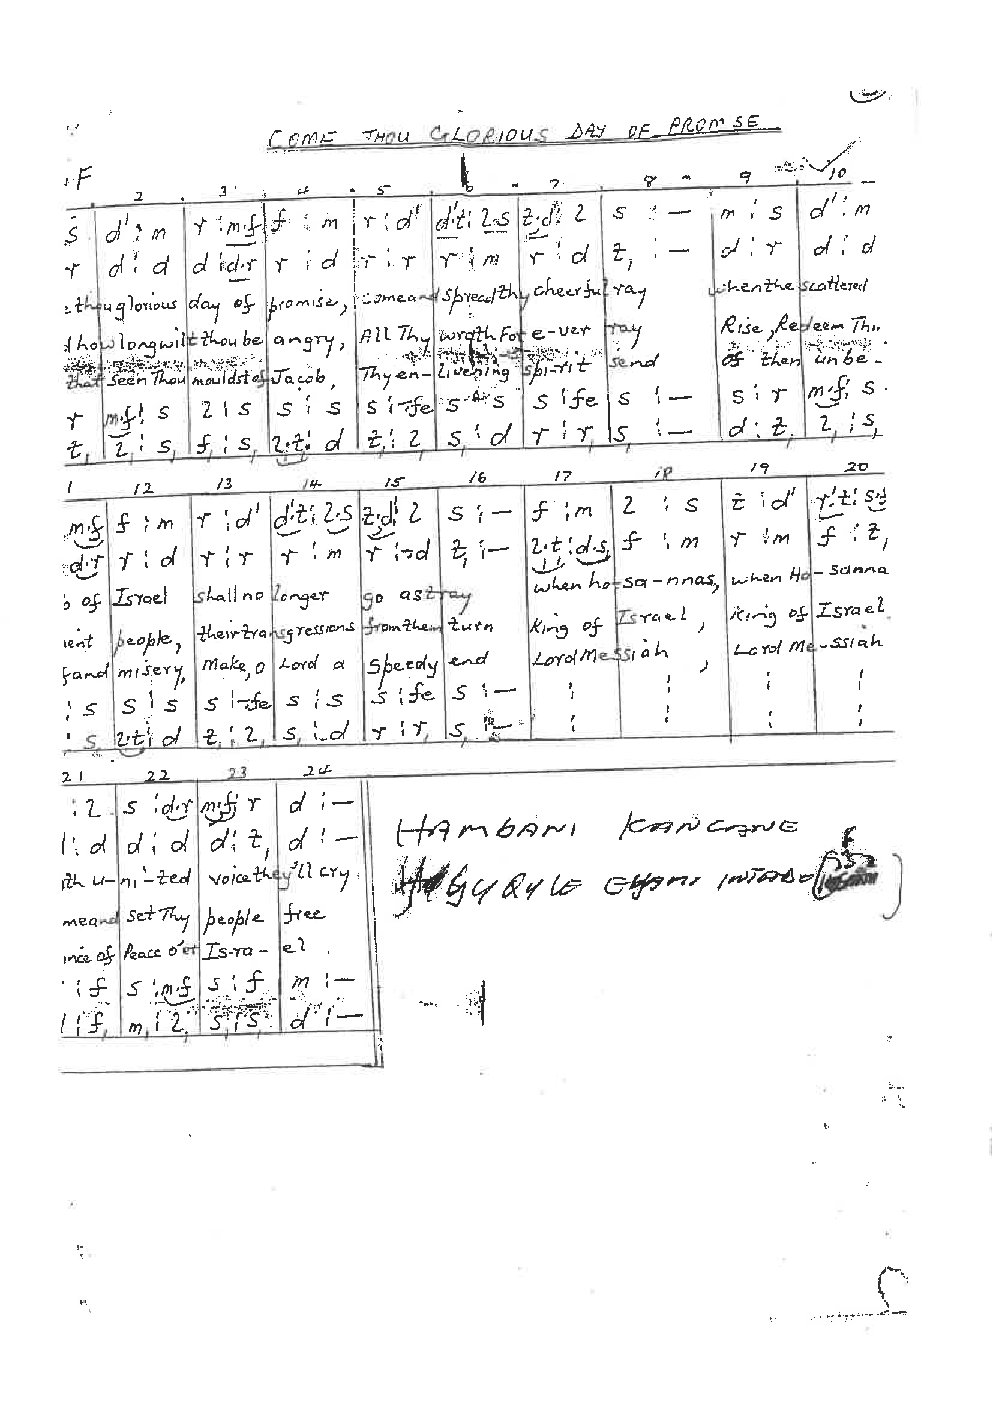 COME THOU GLORIOUS DAY OF PROMSE
F
2 3 4 5 6 7 8 9 10
s d' : m r : m.f f : m r : d' d'.t : l.s t.d' l s : — m : s d' : m
r d : d d : d.r r : d r : r r : m r : d t, : — d : r d : d
thou glorious day of promise, come and spread thy cheerful ray when the scattered
how long wilt thou be angry, All Thy wrath For e-ver ray Rise, Redeem Thi
that seen Thou mouldst of Jacob, Thy en-livening spi-rit send of then un be-
r m.f : s l : s s : s s : -fe s : s s : fe s : — s : r m.f : s
t, l, : s, f, : s, l.t : d t, : l, s, : d r : r, s, : — d : t, l, : s,
1 12 13 14 15 16 17 18 19 20
m.f f : m r : d' d'.t : l.s t.d' l s : — f : m l : s t : d' r'.t : s.s
d.r r : d r : r r : m r : -d t, : — l.t : d.s, f : m r : m f : t,
of Israel shall no longer go astray when ho-sa-nnas, when Ho-sanna
ient people, their transgressions from them turn King of Israel, King of Israel.
fand misery, Make, o Lord a Speedy end Lord Messiah, Lord Me-ssiah
: s s : s s : -fe s : s s : fe s : — : : : :
: s, l.t : d t, : l, s, : d r : r, s, : — : : : :
21 22 23 24
: l s : d.r m.f : r d : —
: d d : d d : t, d : —
ith u-ni-ted voice they'll cry
me and set Thy people free
ince of Peace o'er Is-ra-el.
: f s : m.f s : f m : —
: f, m, : l, s, : s, d : —
HAMBANI KANCANE